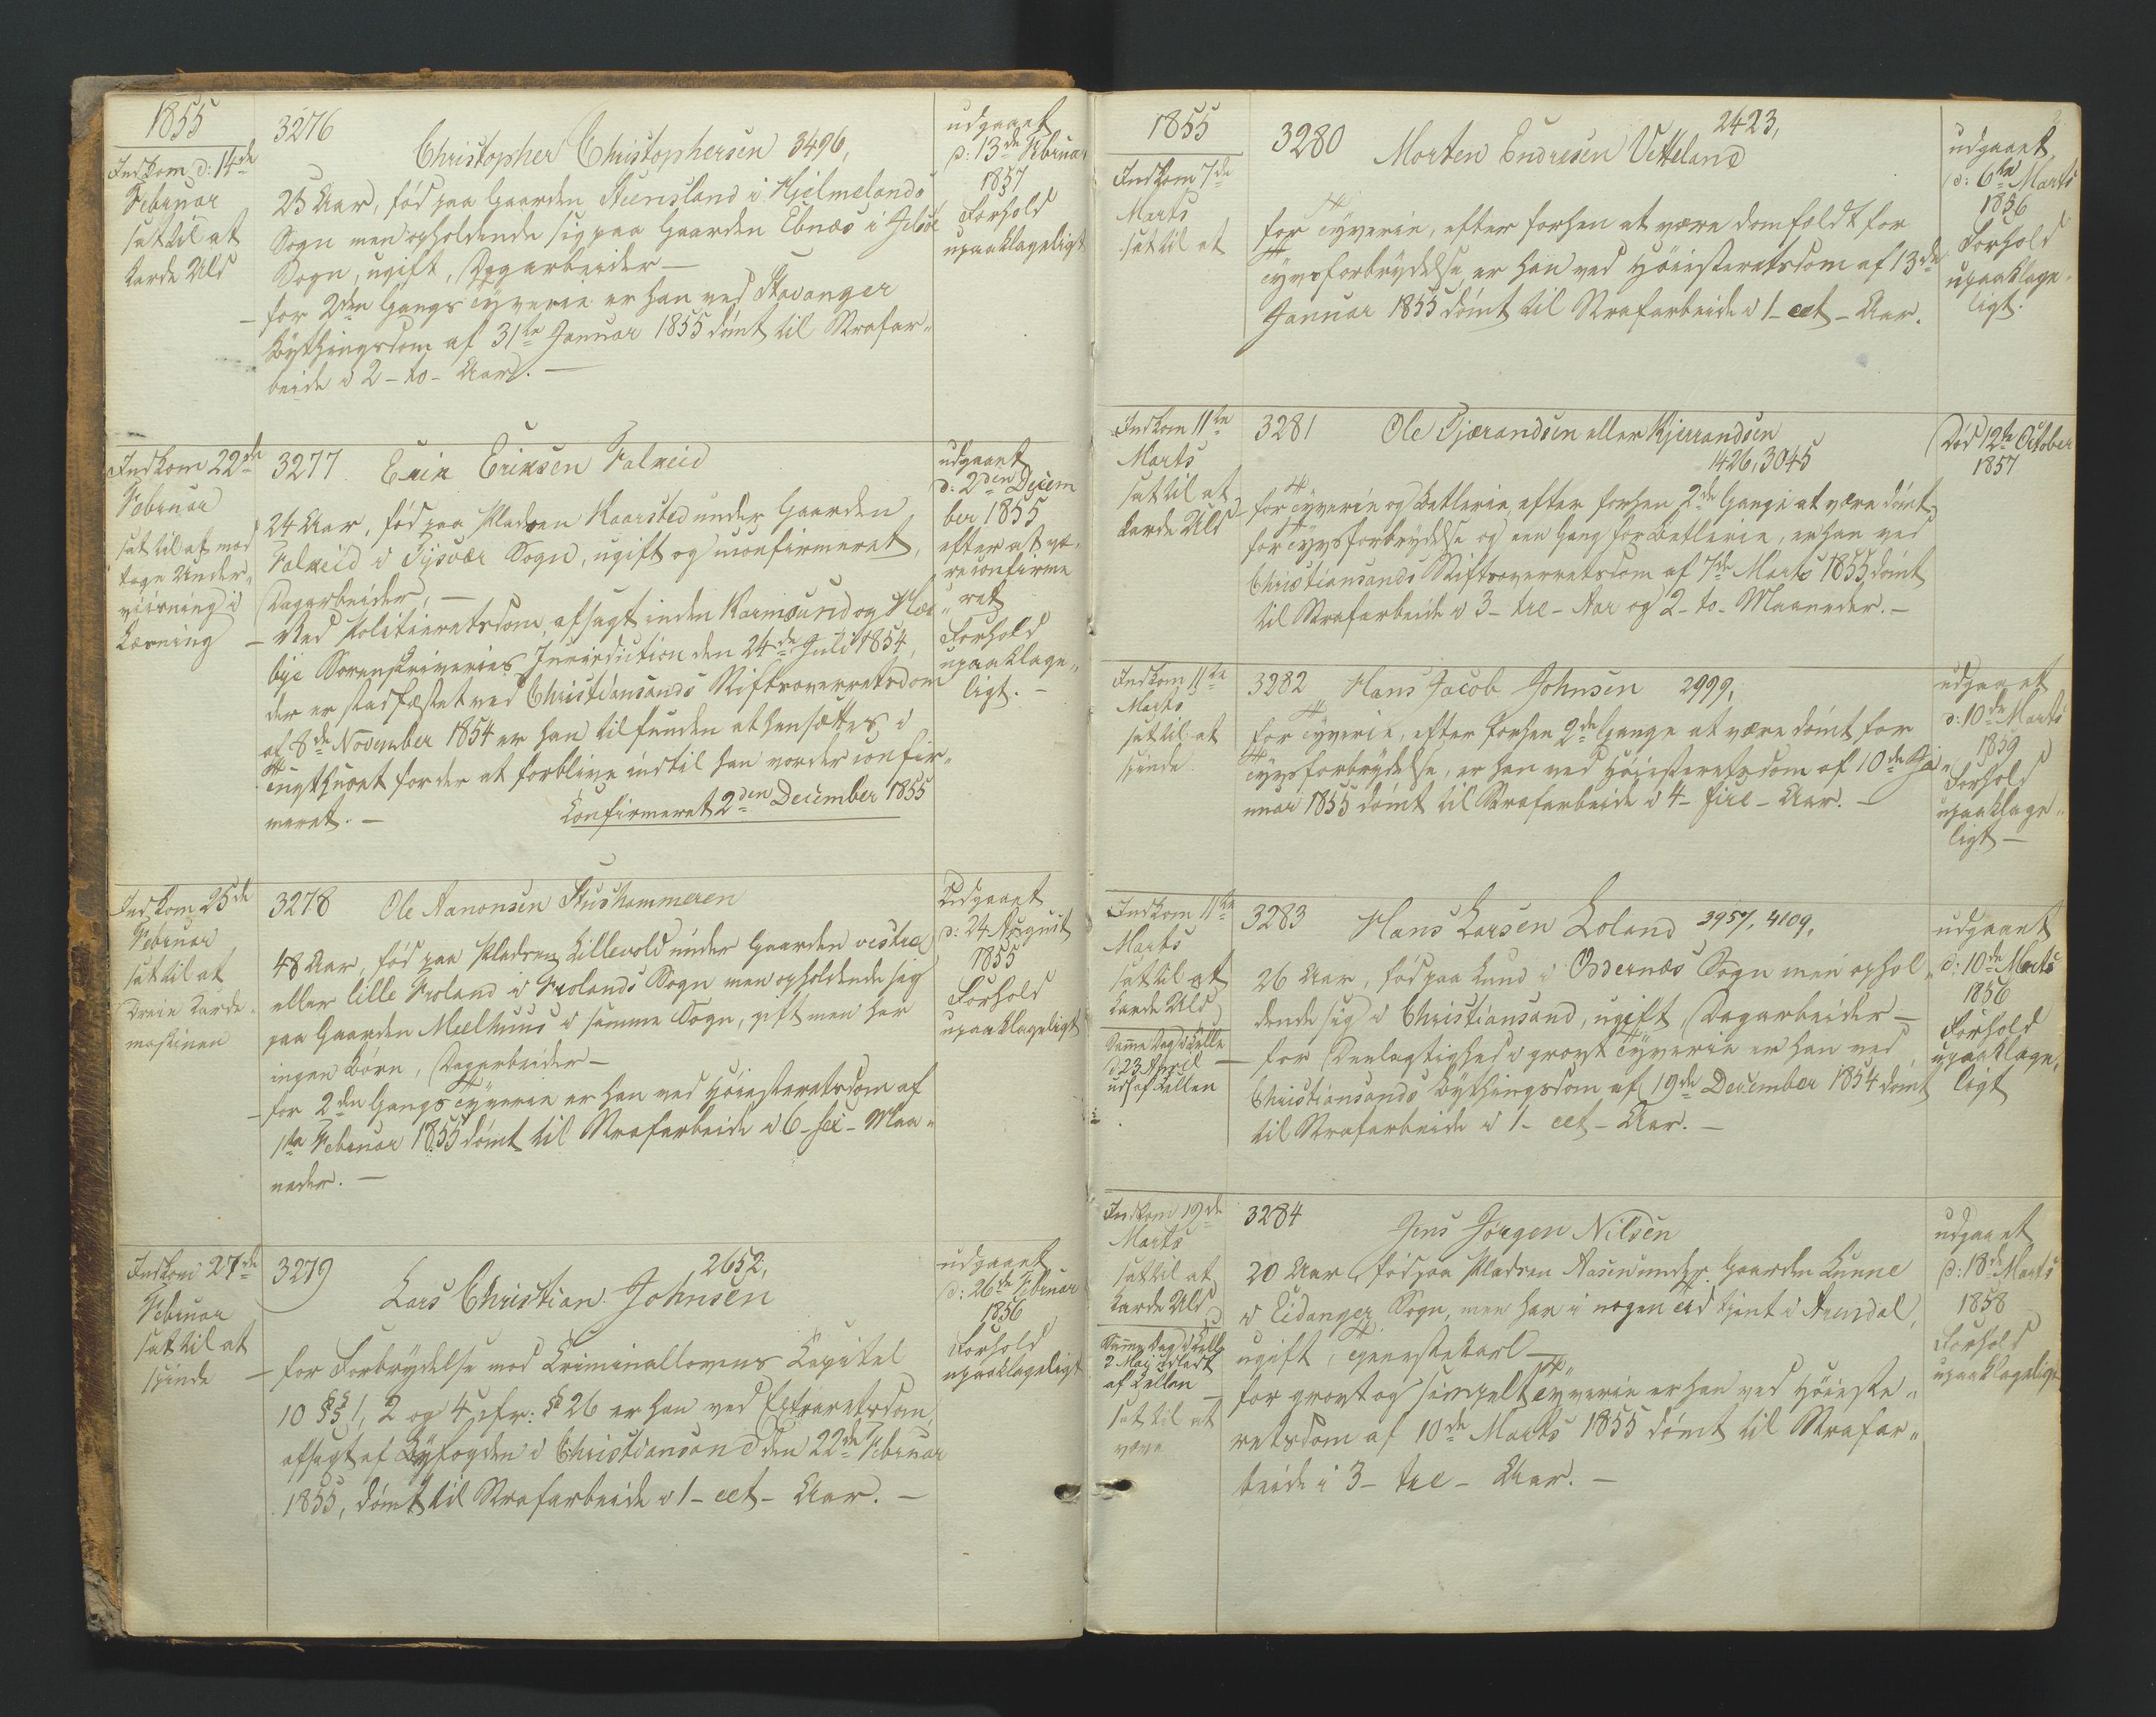 1855
Indkom d: 14de
Februar
sat til at
karde Uld
3276
Christopher Christophersen 3496,
23 Aar, fød paa Gaarden Steensland i Hjelmelands
Sogn men opholdende sig paa Gaarden Ebnæs i Jelsøe
Sogn, ugift, Dagarbeider –
– for 2den Gangs Tyverie er han ved Stavanger
Bythingsdom af 31te Januar 1855 dømt til Strafar„
beide i 2 – to – Aar. –
udgaaet
d: 13de Februar
1857
Forhold
upaaklageligt
Indkom 22de
Februar
sat til at mod
tage Under„
viisning i
Læsning
3277 Erik Eriksen Falkeid
24 Aar, fød paa Pladsen Kaarsted under Gaarden
Falkeid i Tysvær Sogn, ugift og uconfirmeret,
Dagarbeider, –
– Ved Politieretsdom, afsagt inden Karmsund og Hes
bye Sorenskriveries Jurisdiction den 24de Juli 1854,
der er stadfæstet ved Christiansands Stiftsoverretsdom
af 8de November 1854 er han tilfunden at hensættes i
Tugthuset for der at forblive indtil han vorder confir„
meret. –
Confirmeret 2den December 1855
udgaaet
d: 2den Decem
ber 1855
efter at væ„
re confirme
„ret
Forhold
upaaklage„
ligt. –
Indkom 25de
Februar
sat til at
dreie Karde„
maskinen
3278 Ole Aanonsen Stushammeren
48 Aar, fød paa Pladsen Lillevold under Gaarden vestre
eller lille Froland i Frolands Sogn men opholdende sig
paa Gaarden Mælhuus i samme Sogn, gift men har
ingen Børn, Dagarbeider –
– for 2den Gangs Tyverie er han ved Høiesteretsdom af
1ste Februar 1855 dømt til Strafarbeide i 6 – sex – Maa„
neder. –
Udgaaet
d: 24 August
1855
Forhold
upaaklageligt
Indkom 27de
Februar
sat til at
spinde
3279
2652,
Lars Christian Johnsen
– for Forbrydelse mod Criminallovens Capitel
10 §§ 1, 2 og 4 cfr: § 26 er han ved Extraretsdom,
afsagt af Byfogden i Christiansand den 22de Februar
1855, dømt til Strafarbeide i 1 – eet – Aar. –
udgaaet
d: 26de Februar
1856
Forhold
upaaklageligt
1855
Indkom 7de
Marts
sat til at
3280
2423,
Morten Endresen Vetteland
for Tyverie, efter forhen at være domfældt for
Tyvsforbrydelse er han ved Høiesteretsdom af 13de
Januar 1855 dømt til Strafarbeide i 1 – eet – Aar.
udgaaet
d: 6te Marts
1856
Forhold
upaaklage„
ligt.
Indkom 11te
Marts
sat til at
karde Uld
3281 Ole Gjærandsen eller Kjerrandsen
1426, 3045
for Tyverie og Betlerie efter forhen 2de Gange at være dømt
for Tyvsforbrydelse og een Gang for Betlerie, er han ved
Christiansands Stiftsoverretsdom af 7de Marts 1855 dømt
til Strafarbeide i 3 – tre – Aar og 2 – to – Maaneder. –
Død 12te October
1857
Indkom 11te
Marts
sat til at
spinde
3282 Hans Jacob Johnsen 2999,
for Tyverie, efter forhen 2de Gange at være dømt for
Tyvsforbrydelse, er han ved Høiesteretsdom af 10de Ja„
nuar 1855 dømt til Strafarbeide i 4 – fire – Aar. –
udgaaet
d: 10de Marts
1859
Forhold
upaaklage„
ligt –
Indkom 11te
Marts
sat til at
karde Uld
Samme Dag i Celle
d 23 April
ud af Cellen
3283 Hans Larsen Loland 3957, 4109,
26 Aar, fød paa Lund i Oddernæs Sogn men ophol„
dende sig i Christiansand, ugift, Dagarbeider –
– for Deelagtighed i grovt Tyverie er han ved
Christiansands Bythingsdom af 19de December 1854 dømt
til Strafarbeide i 1 – eet – Aar. –
udgaaet
d: 10de Marts
1856
Forhold
upaaklage„
ligt
Indkom 19de
Marts
sat til at
karde Uld
Samme Dag i Celle
2 May udladt
af Cellen
sat til at
væve
3284
Jens Jørgen Nilsen
20 Aar, fød paa Pladsen Aasen under Gaarden Lunne
i Eidanger Sogn, men har i nogen Tid tjent i Arendal,
ugift, Tjenestekarl –
– for grovt og simpelt Tyverie er han ved Høieste„
retsdom af 10de Marts 1855 dømt til Strafar„
beide i 3 – tre – Aar. –
udgaaet
d: 18de Marts
1858
Forhold
upaaklageligt